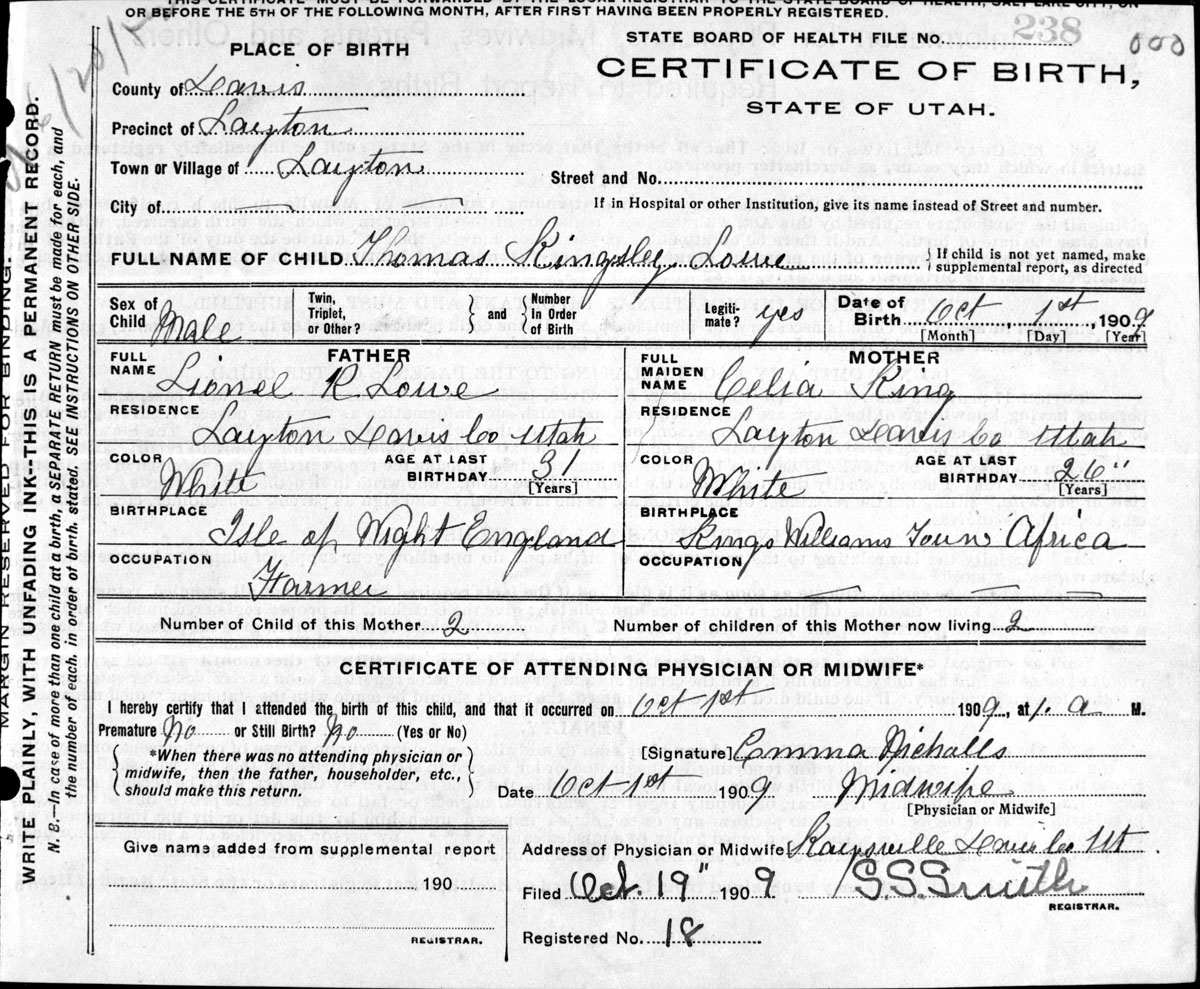 THIS CERTIFICATE MUST BE FORWARDED BY THE LOCAL REGISTRAR TO THE STATE BOARD OF HEALTH, SALT LAKE CITY, ON
OR BEFORE THE 5TH OF THE FOLLOWING MONTH, AFTER FIRST HAVING BEEN PROPERLY REGISTERED.
STATE BOARD OF HEALTH FILE NO. 238
000
CERTIFICATE OF BIRTH,
STATE OF UTAH.
PLACE OF BIRTH
County of Davis
Precinct of Layton
Town or Village of Layton
Street and No.
City of
If in Hospital or other Institution, give its name instead of Street and number.
FULL NAME OF CHILD Thomas Kingsley Lowe
If child is not yet named, make supplemental report, as directed
Sex of Child Male
Twin, Triplet, or Other?
and
Number In Order of Birth
Legitimate? yes
Date of Birth Oct 1st, 1909
[Month] [Day] [Year]
FATHER
FULL NAME Lionel R Lowe
RESIDENCE
Layton Davis Co Utah
COLOR White AGE AT LAST BIRTHDAY 31 [Years]
BIRTHPLACE
Isle of Wight England
OCCUPATION
Farmer
MOTHER
FULL MAIDEN NAME Celia King
RESIDENCE
Layton Davis Co Utah
COLOR White AGE AT LAST BIRTHDAY 26" [Years]
BIRTHPLACE
Kings Williams Town Africa
OCCUPATION
Number of Child of this Mother 2
Number of children of this Mother now living 2
CERTIFICATE OF ATTENDING PHYSICIAN OR MIDWIFE*
I hereby certify that I attended the birth of this child, and that it occurred Oct 1st 1909, at 1. a M.
Premature No or Still Birth? No (Yes or No)
*When there was no attending physician or
midwife, then the father, householder, etc.,
should make this return.
[Signature] Emma Nicholls
Date Oct 1st 1909, Midwife
[Physician or Midwife]
Give name added from supplemental report
190
REGISTRAR.
Address of Physician or Midwife Kaysville Davis Co Ut
Filed Oct. 19" 1909 S.S. Smith
REGISTRAR.
Registered No. 18
MARGIN RESERVED FOR BINDING.
WRITE PLAINLY, WITH UNFADING INK-THIS IS A PERMANENT RECORD.
N. B.—In case of more than one child at a birth, a SEPARATE RETURN must be made for each, and
the number of each, in order of birth, stated. SEE INSTRUCTIONS ON OTHER SIDE.